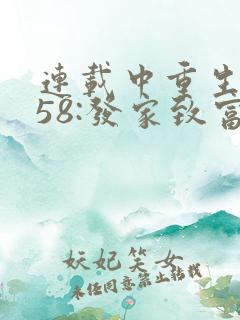 連載中重生
58:發家致富
妖妃笑女
未經同意禁止轉載